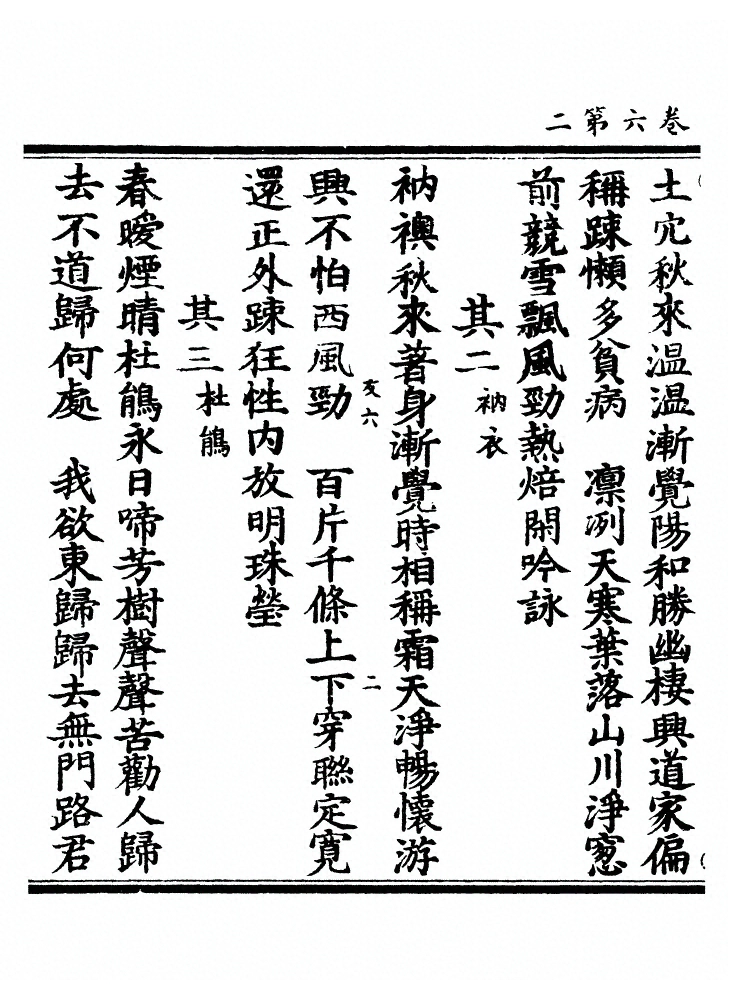 卷六第二
土宂秋來温温漸覺陽和勝幽棲興道家偏
稱踈懶多貧病　凛冽天寒葉落山川淨窻
前競雪飄風勁熱焙閑吟詠
其二衲衣
衲襖秋來著身漸覺時相稱霜天淨暢懷游
興不怕西風勁　百片千條上下穿聮定寛
友六　二
還正外踈狂性内放明珠瑩
其三杜鵑
春曖煙晴杜鵑永日啼芳樹聲聲苦勸人歸
去不道歸何處　我欲東歸歸去無門路君